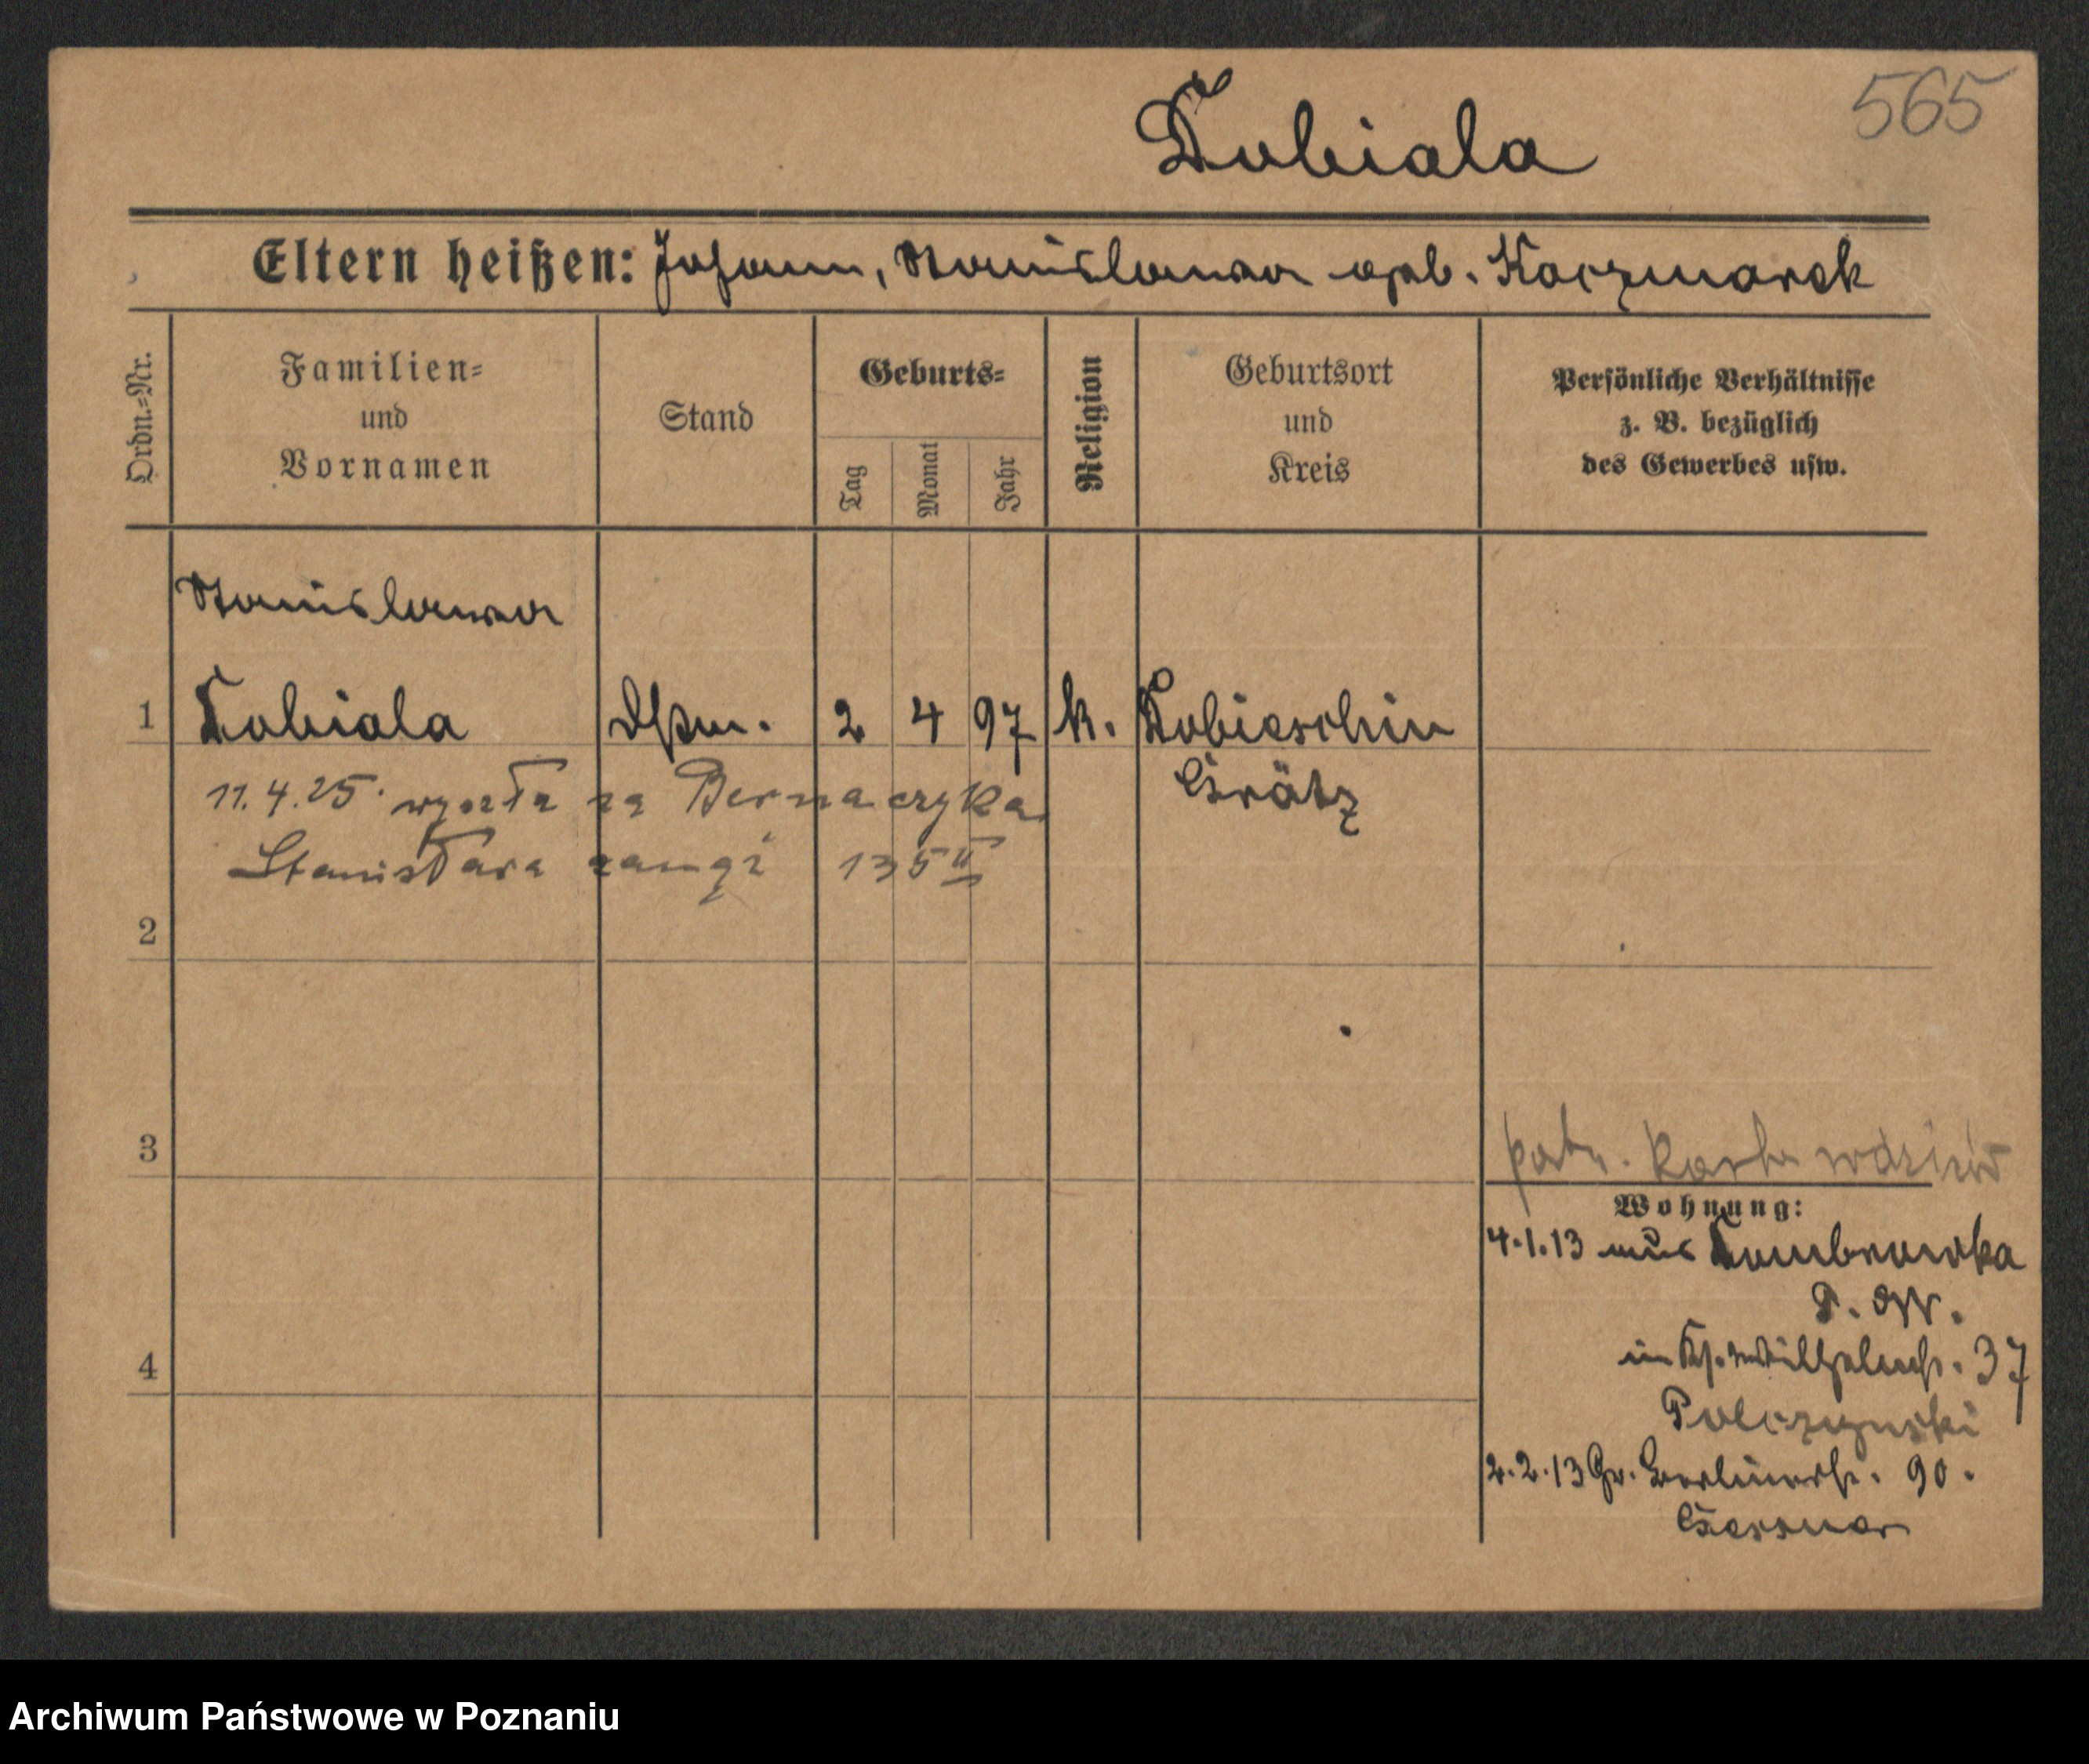 565
Dubiala
Eltern heißen: Johann, Stanislawa geb. Kaczmarek
Ordn.-Nr.
Familien-
und
Vornamen
Stand
Geburts-
Tag
Monat
Jahr
Religion
Geburtsort
und
Kreis
Persönliche Verhältnisse
z. B. bezüglich
des Gewerbes usw.
Stanislawa
1 Dubiala 2 4 97 k. Dobieschin
Grätz
11.4.25. wyszła za Bernaczyka
Stanisława 135 II
2
3
karta
Wohnung:
4.1.13 aus Dombrowka
4
in 37
2.2.13 Gr. Berlinerstr. 90.
Archiwum Państwowe w Poznaniu